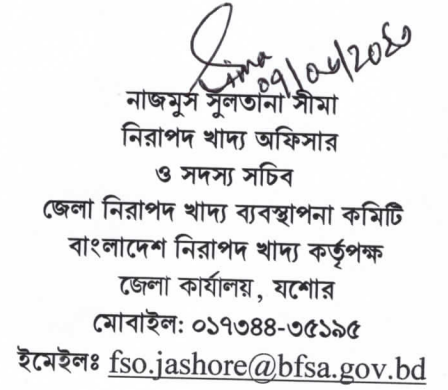 Sima
09/06/2025
নাজমুস সুলতানা সীমা
নিরাপদ খাদ্য অফিসার
ও সদস্য সচিব
জেলা নিরাপদ খাদ্য ব্যবস্থাপনা কমিটি
বাংলাদেশ নিরাপদ খাদ্য কর্তৃপক্ষ
জেলা কার্যালয়, যশোর
মোবাইল: ০১৭৩৪৪-৩৫১৯৫
ইমেইলঃ fso.jashore@bfsa.gov.bd